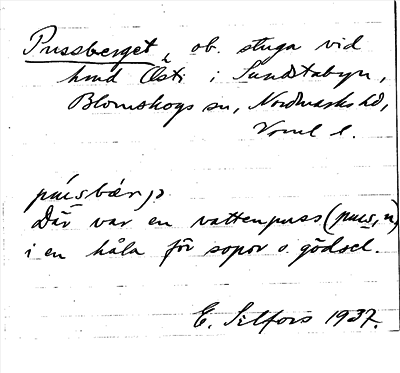 Pussberget, ob. stuga vid
hmd Östi i Sundstabyn,
Blomskogs sn, Nordmarks hd,
Verml l.
Där var en vattenpuss (
i en håla för sopor o. gödsel.
E. Silfors 1937.